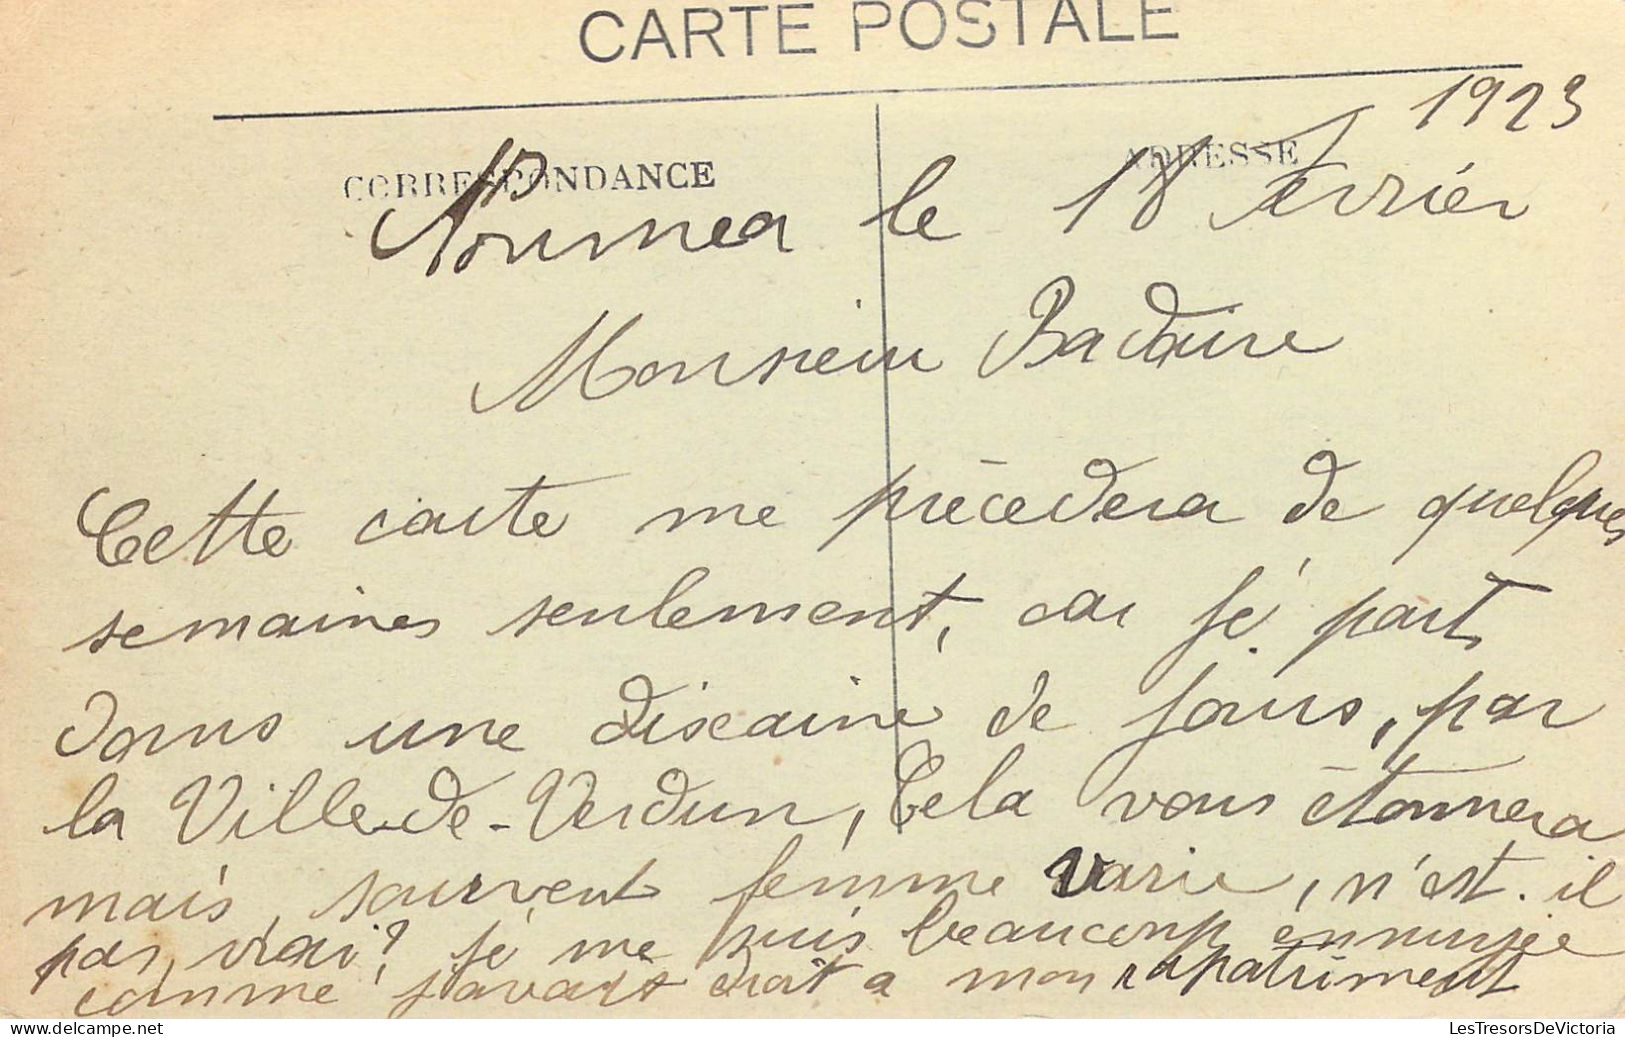 CARTE POSTALE
1923
CORRESPONDANCE ADRESSE
Noumea le 18 Fevrier
Monsieur
Cette carte me précedera de quelques
semaines seulement, car je part
dans une disaine de jours, par
la Ville-de-Verdun, Cela vous étonnera
mais, souvent femme varie, n'est-il
pas vrai? je me suis beaucoup ennuyée
comme j'avais droit a mon rapatriment
delcampe.net
LesTresorsDeVictoria